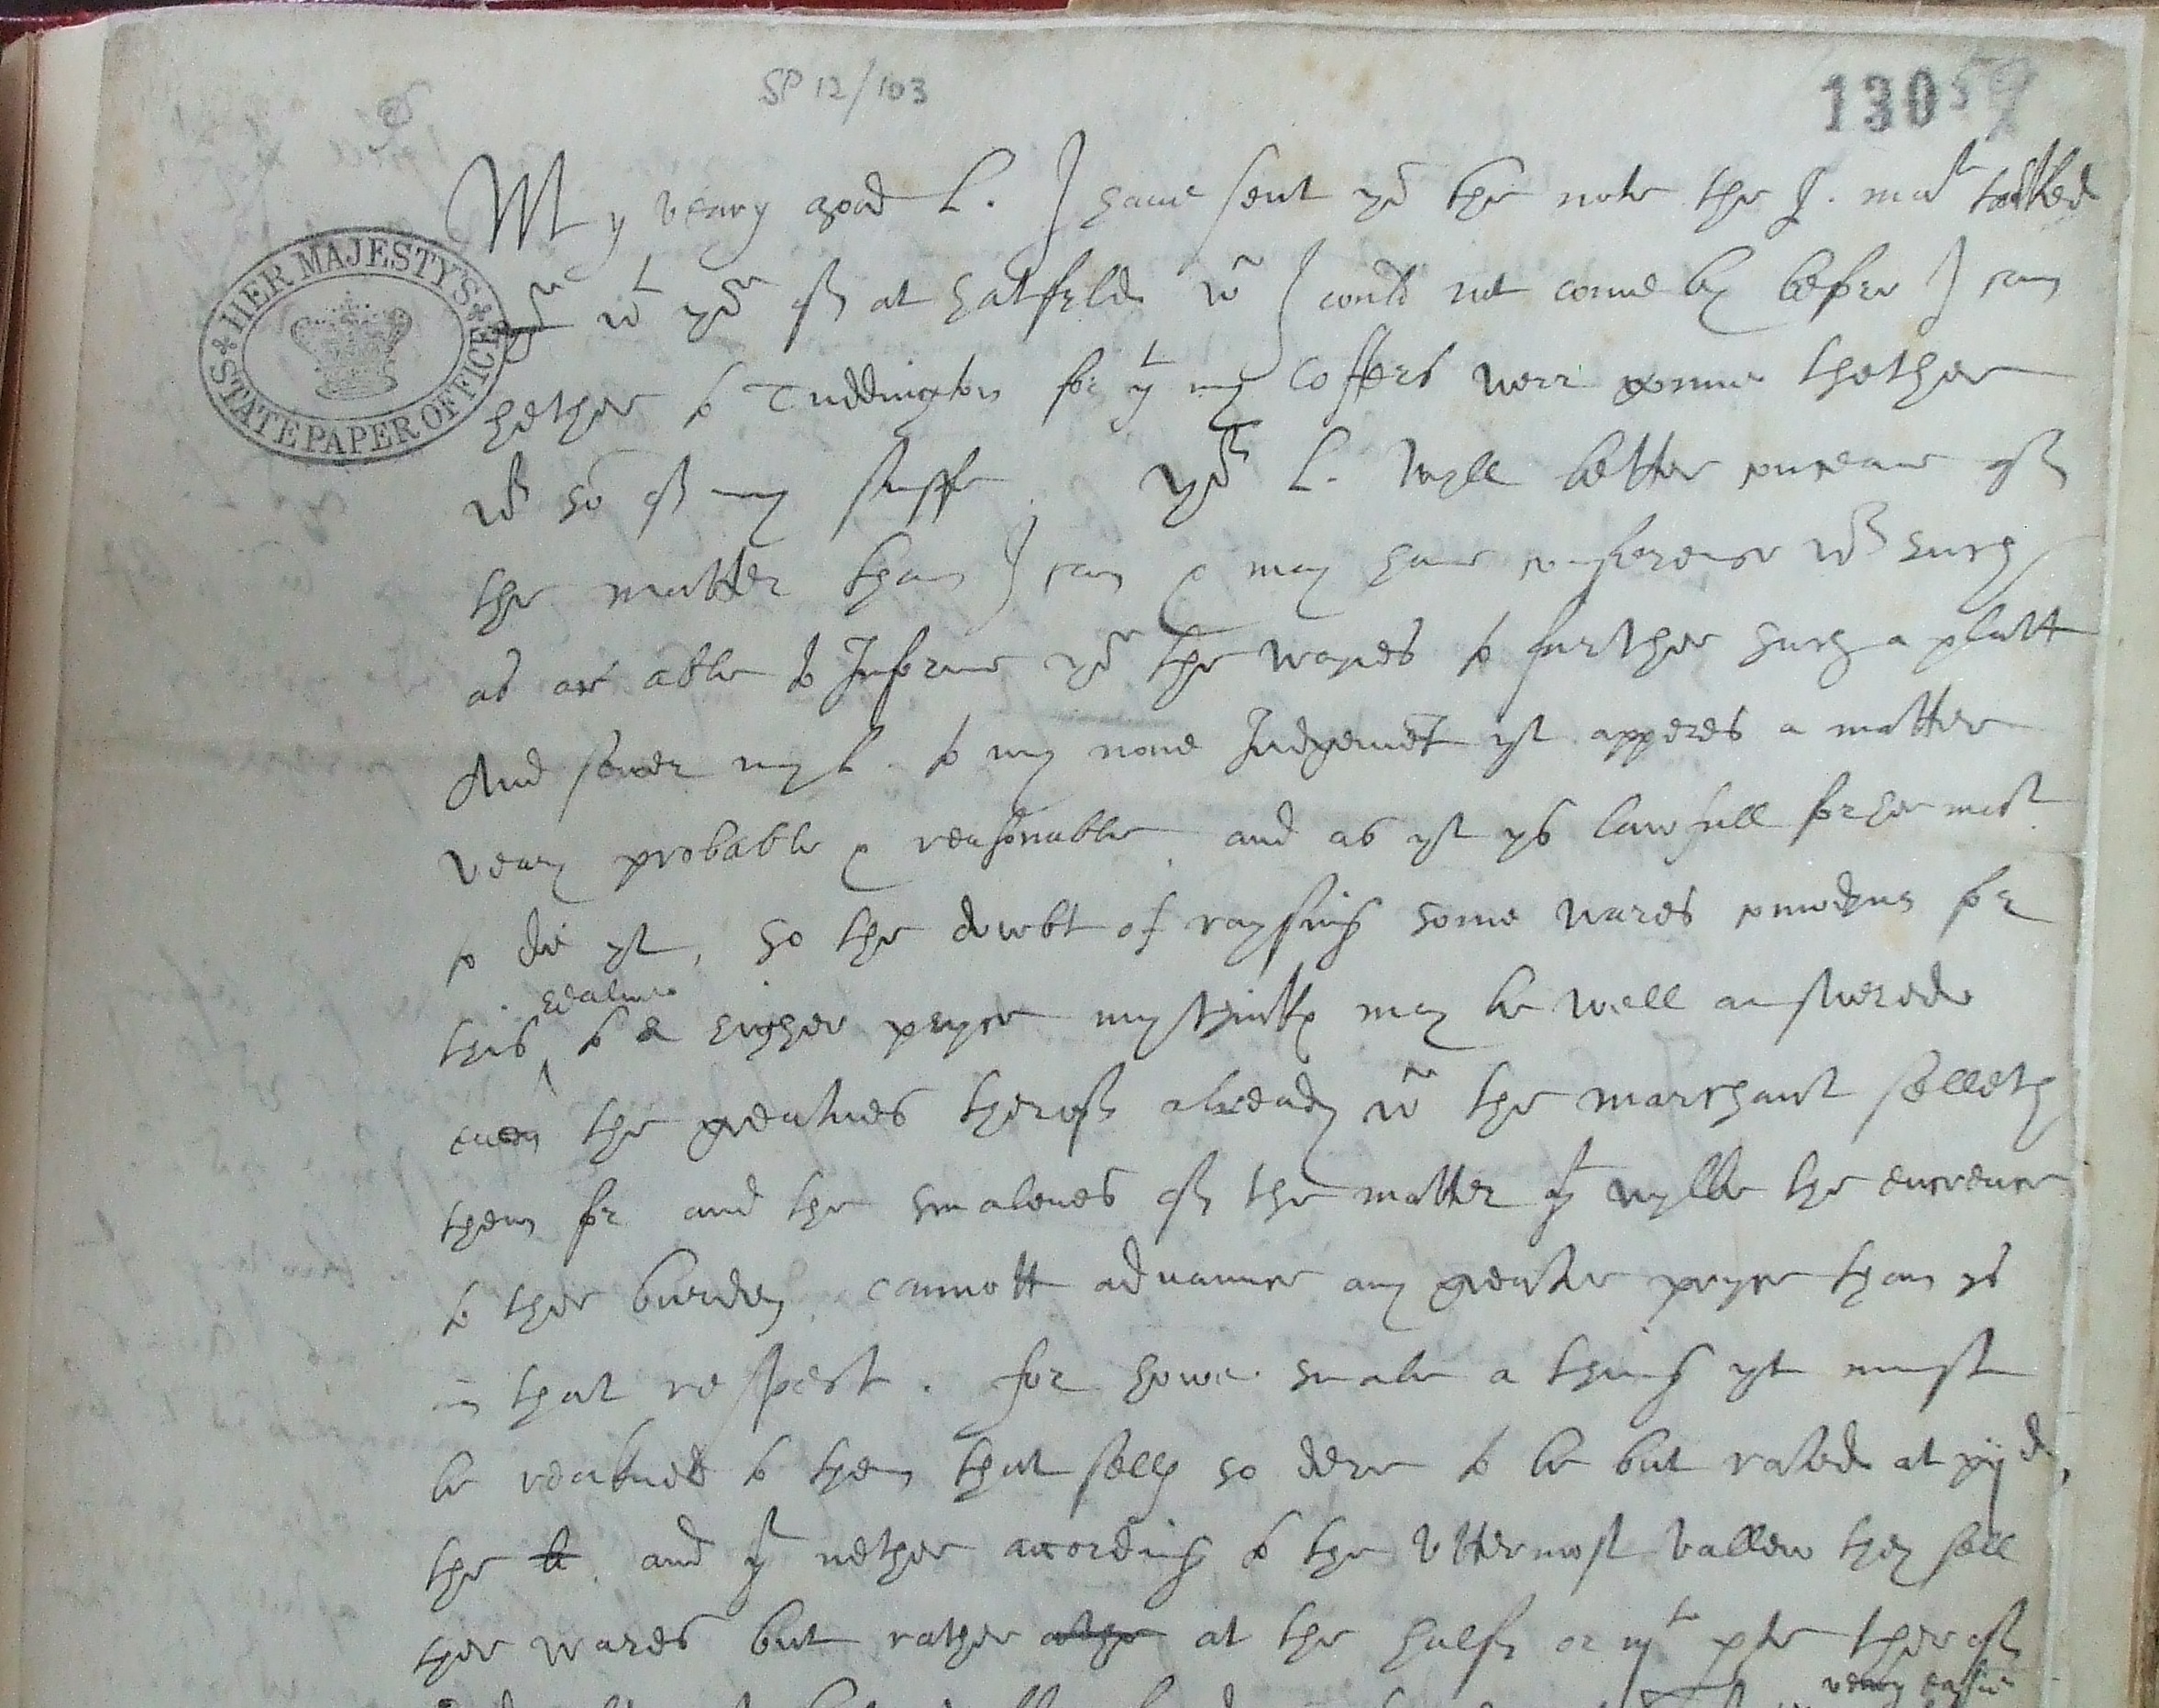 SP 12/103
130 59
HER MAJESTY'S STATE PAPER OFFICE
My veary good L. I haue sent yor the note the Q. matie talked
wt yor of at hatfeld wch I could not come by before I cam
hether to Tuddington for yt my coffers wer gonne thether
wth so of my stuffe. yor L. wyll better conceaue of
the matter than I can & may haue conference wth such
as ar able to Informe yor the wayes to further such a platt
And sewer my L. to my none Judgemet yt apperes a matter
veary probable & reasonable, and as yt ys lawfull for her matie
to do yt, so the dowbt of raysing some wares comodyus for
this realme to a higher pryce mythinks may be well answerede
euen the greatnes therof already wch the marchant selleth
them for and the smalenes of the matter yt wylbe the encreace
to ther burden, cannott aduaunce any greater pryce than ys
in that respect. for howe smale a thing yt must
be reakned to them that selly so dere to be but rated at xij d,
the li. and yt nether according to the vttermost vallew they sell
ther wares but rather at the halfe or iijth pte therof
veary easie